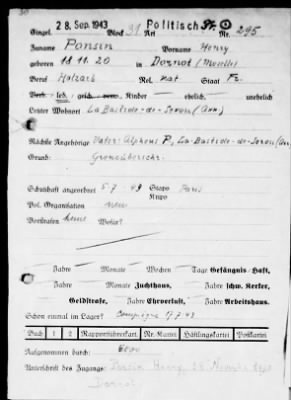 28. Sep. 1943 Politisch Fr.
Eingel. Block 31 Art Nr. 295
Zuname Ponsin Vorname Henry
geb. 18.11.20 in Dornot (Moselle)
Beruf Holzark Rel. kat Staat Fr.
Verh. led., gesch. verw. Kinder ehelich, unehelich
Letzter Wohnort La Bastide-de-Serou (Arr.)
Nächste Angehörige Vater: Alphons P., La-Bastide-de-Serou (Arr.
Grund: Grenzüberschr.
Schutzhaft angeordnet 5.7.43 Stapo Paris
Kripo
Pol. Organisation nein
Vorstrafen keine Wofür?
Jahre Monate Wochen Tage Gefängnis/Haft,
Jahre Monate Zuchthaus, Jahre schw. Kerker,
Geldstrafe, Jahre Ehrverlust, Jahre Arbeitshaus.
Schon einmal im Lager? Compiègne 17.7.43
Buch 1 2 Rapportführerkart. Nr. Kartei Häftlingskartei Postkartei
Aufgenommen durch:
Unterschrift des Zugangs: Ponsin Henry, 18 Novembre 1920
Dornot